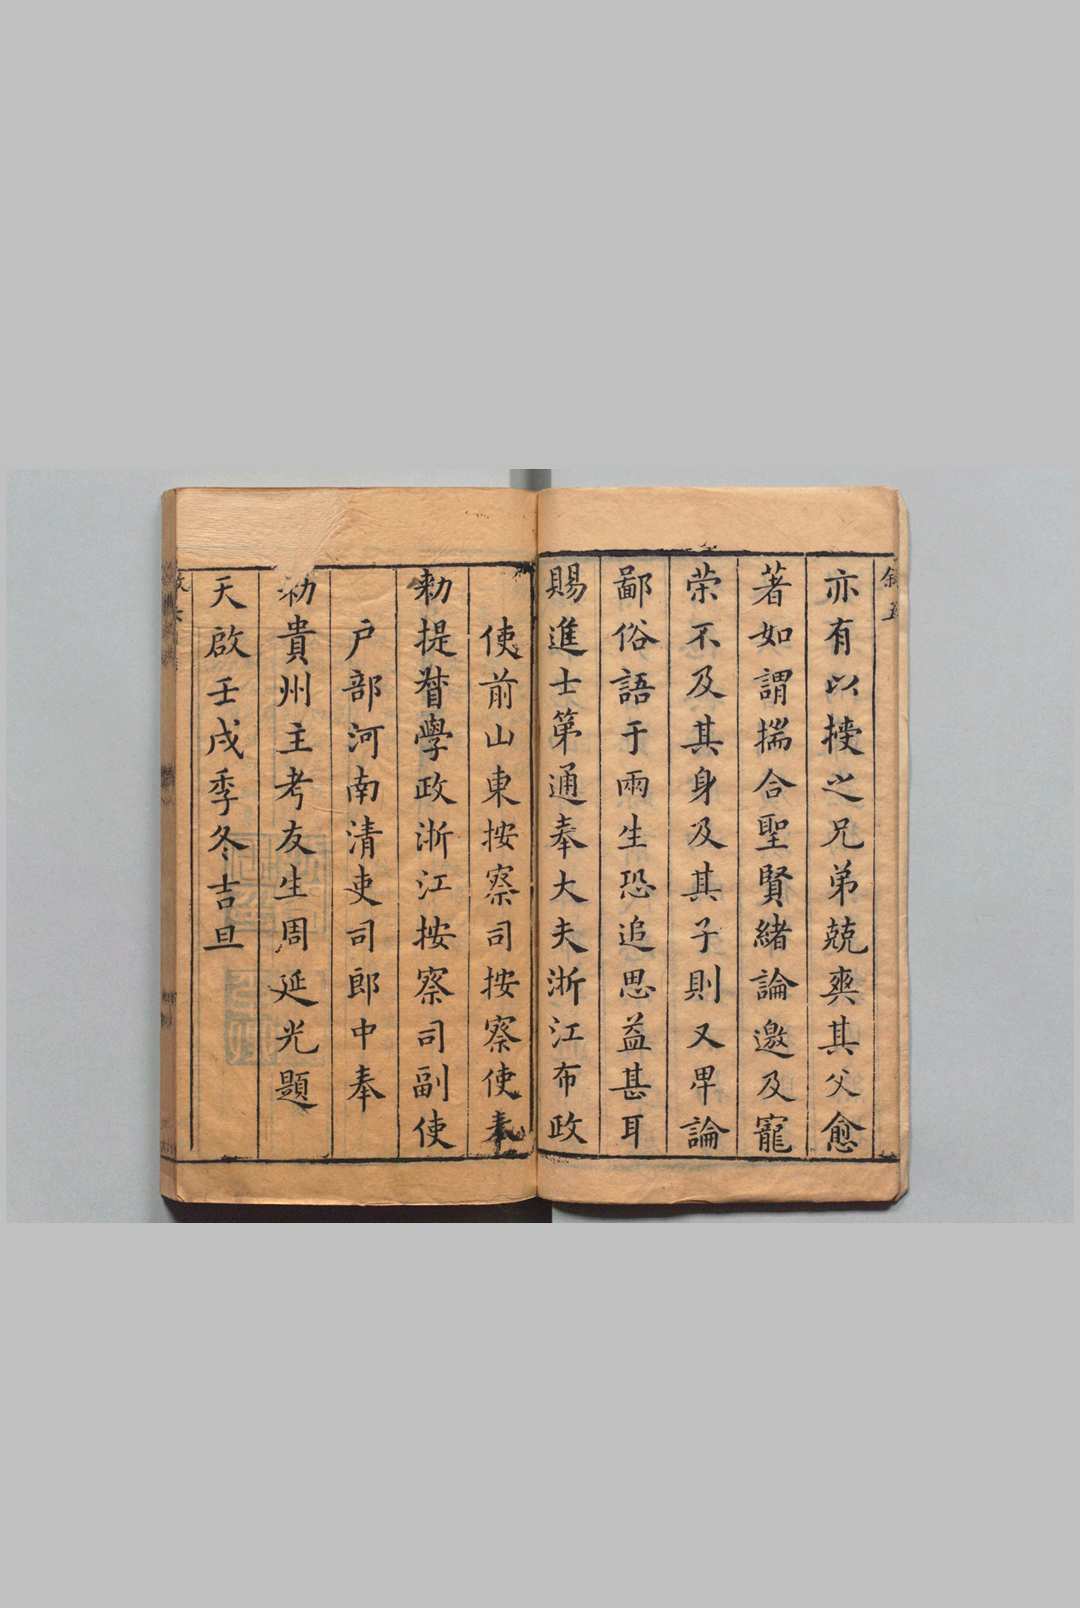 亦有以㨗之兄弟兢爽其父愈
著如謂揣合聖賢緒論邀及寵
荣不及其身及其子則又畢論
鄙俗語于兩生恐追思益甚耳
賜進士第通奉大夫浙江布政
使前山東按察司按察使奉
勑提督學政浙江按察司副使
户部河南清吏司郎中奉
勑貴州主考友生周延光題
天啟壬戌季冬吉旦